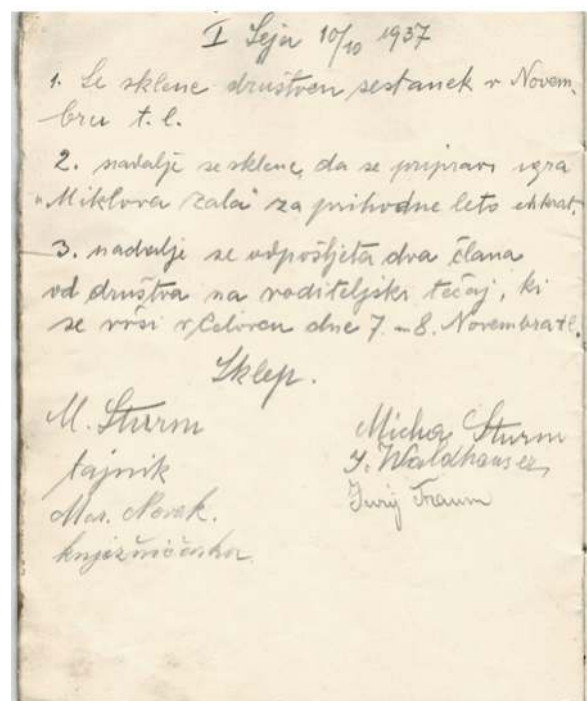 I Seja 10/10 1937
1. Se sklene društven sestanek v Novem-
bru t.l.
2. nadalje se sklene, da se pripravi igra
"Miklova Zala" za prihodne leto
3. nadalje se odpošljeta dva člana
od društva na voditeljski tečaj, ki
se vrši v Celovcu dne 7.-8. Novembra t.l.
Sklep.
M. Sturm
tajnik
Mar. Novak.
Micha Sturm
J. Waldhauser
Jurij Traum